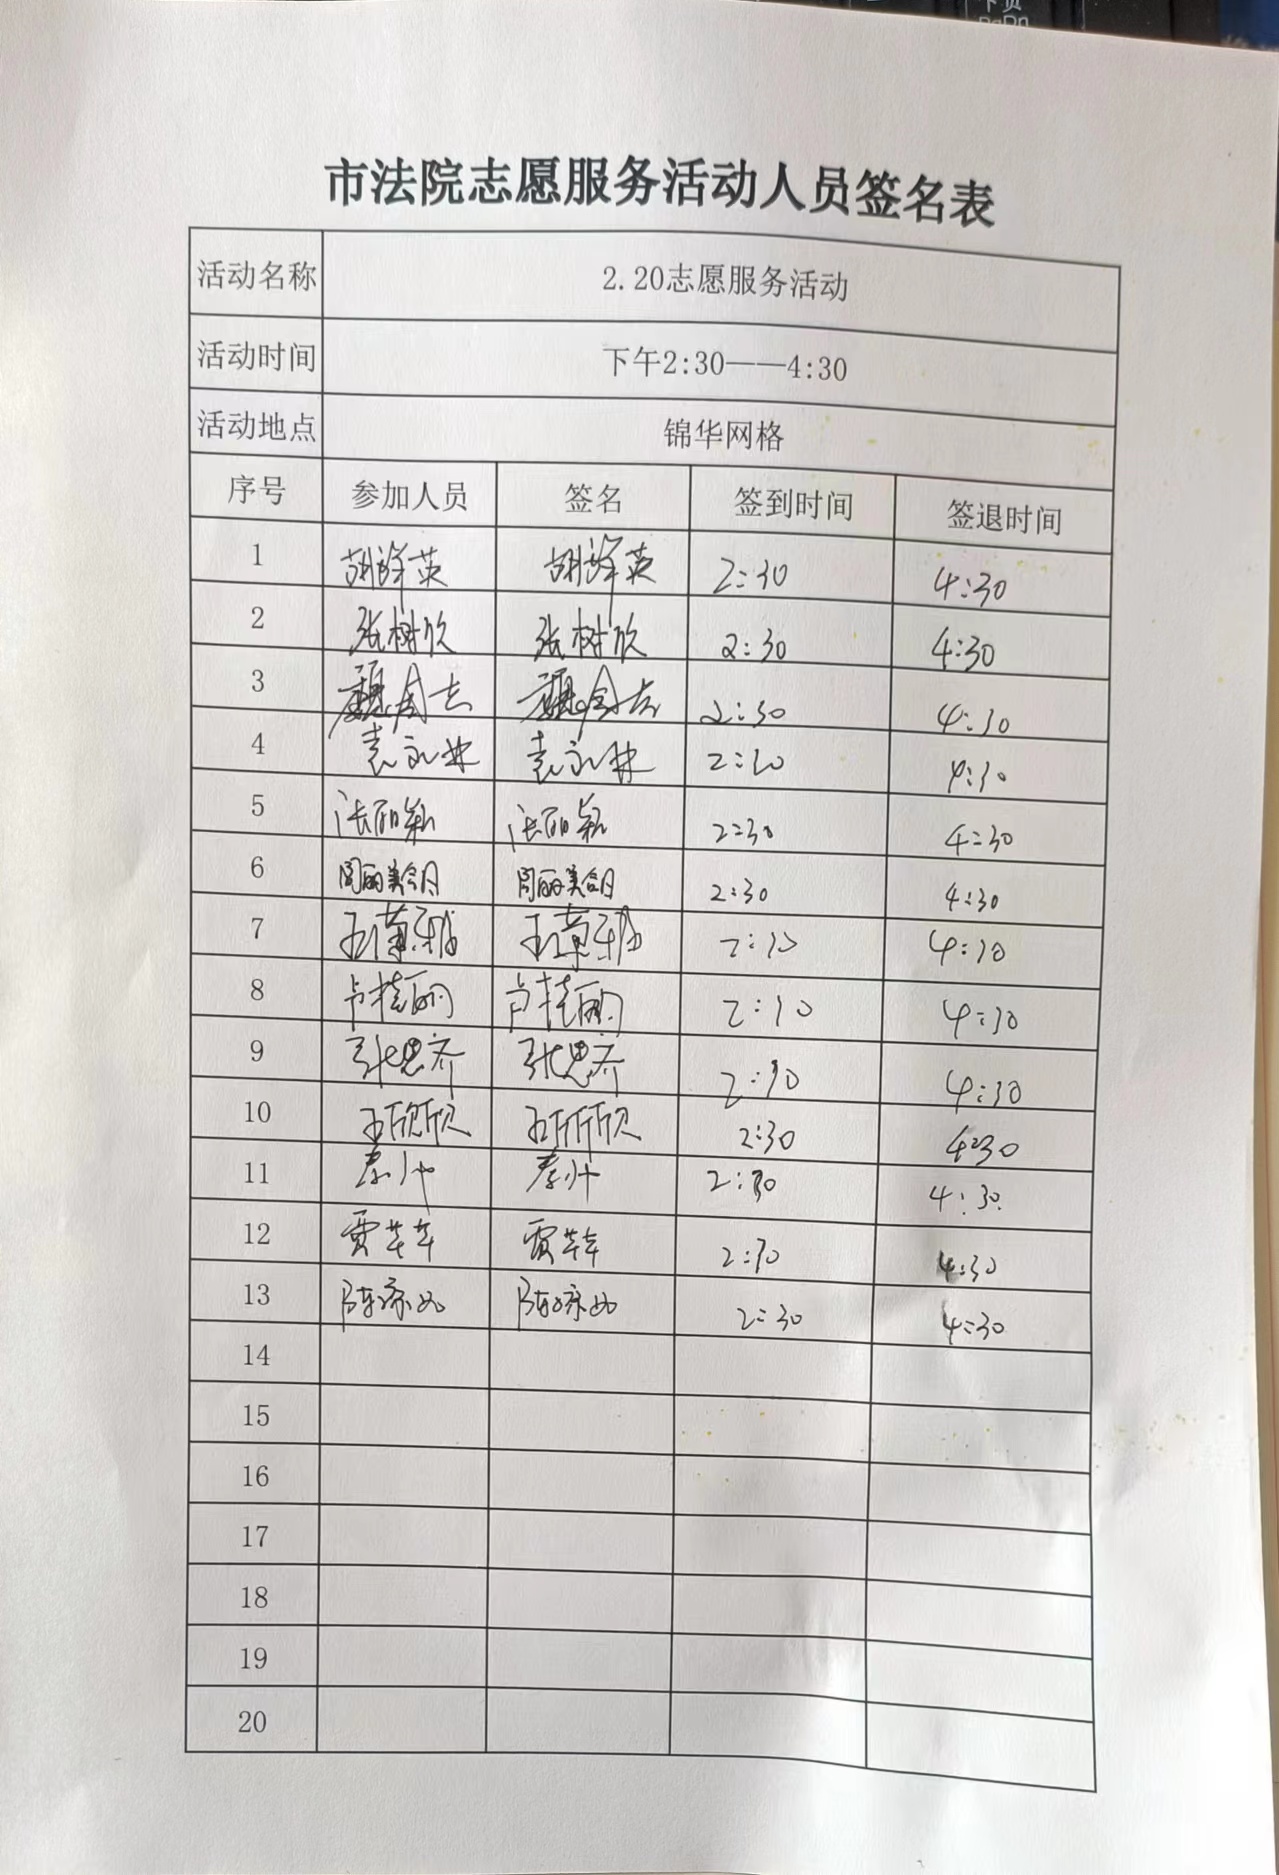 市法院志愿服务活动人员签名表
活动名称 2.20志愿服务活动
活动时间 下午2:30——4:30
活动地点 锦华网格
序号 参加人员 签名 签到时间 签退时间
1 2:30 4:30
2 张树欣 张树欣 2:30 4:30
3 2:30 4:30
4 袁永林 袁永林 2:30 4:30
5 张丽颖 张丽颖 2:30 4:30
6 2:30 4:30
7 2:30 4:30
8 卢桂丽 卢桂丽 2:30 4:30
9 张思齐 张思齐 2:30 4:30
10 王欣欣 王欣欣 2:30 4:30
11 2:30 4:30
12 2:30 4:30
13 陈琼如 陈琼如 2:30 4:30
14
15
16
17
18
19
20